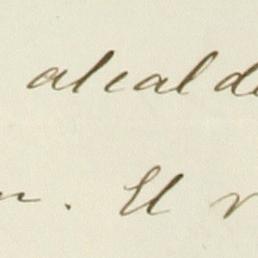 alcalde
. El